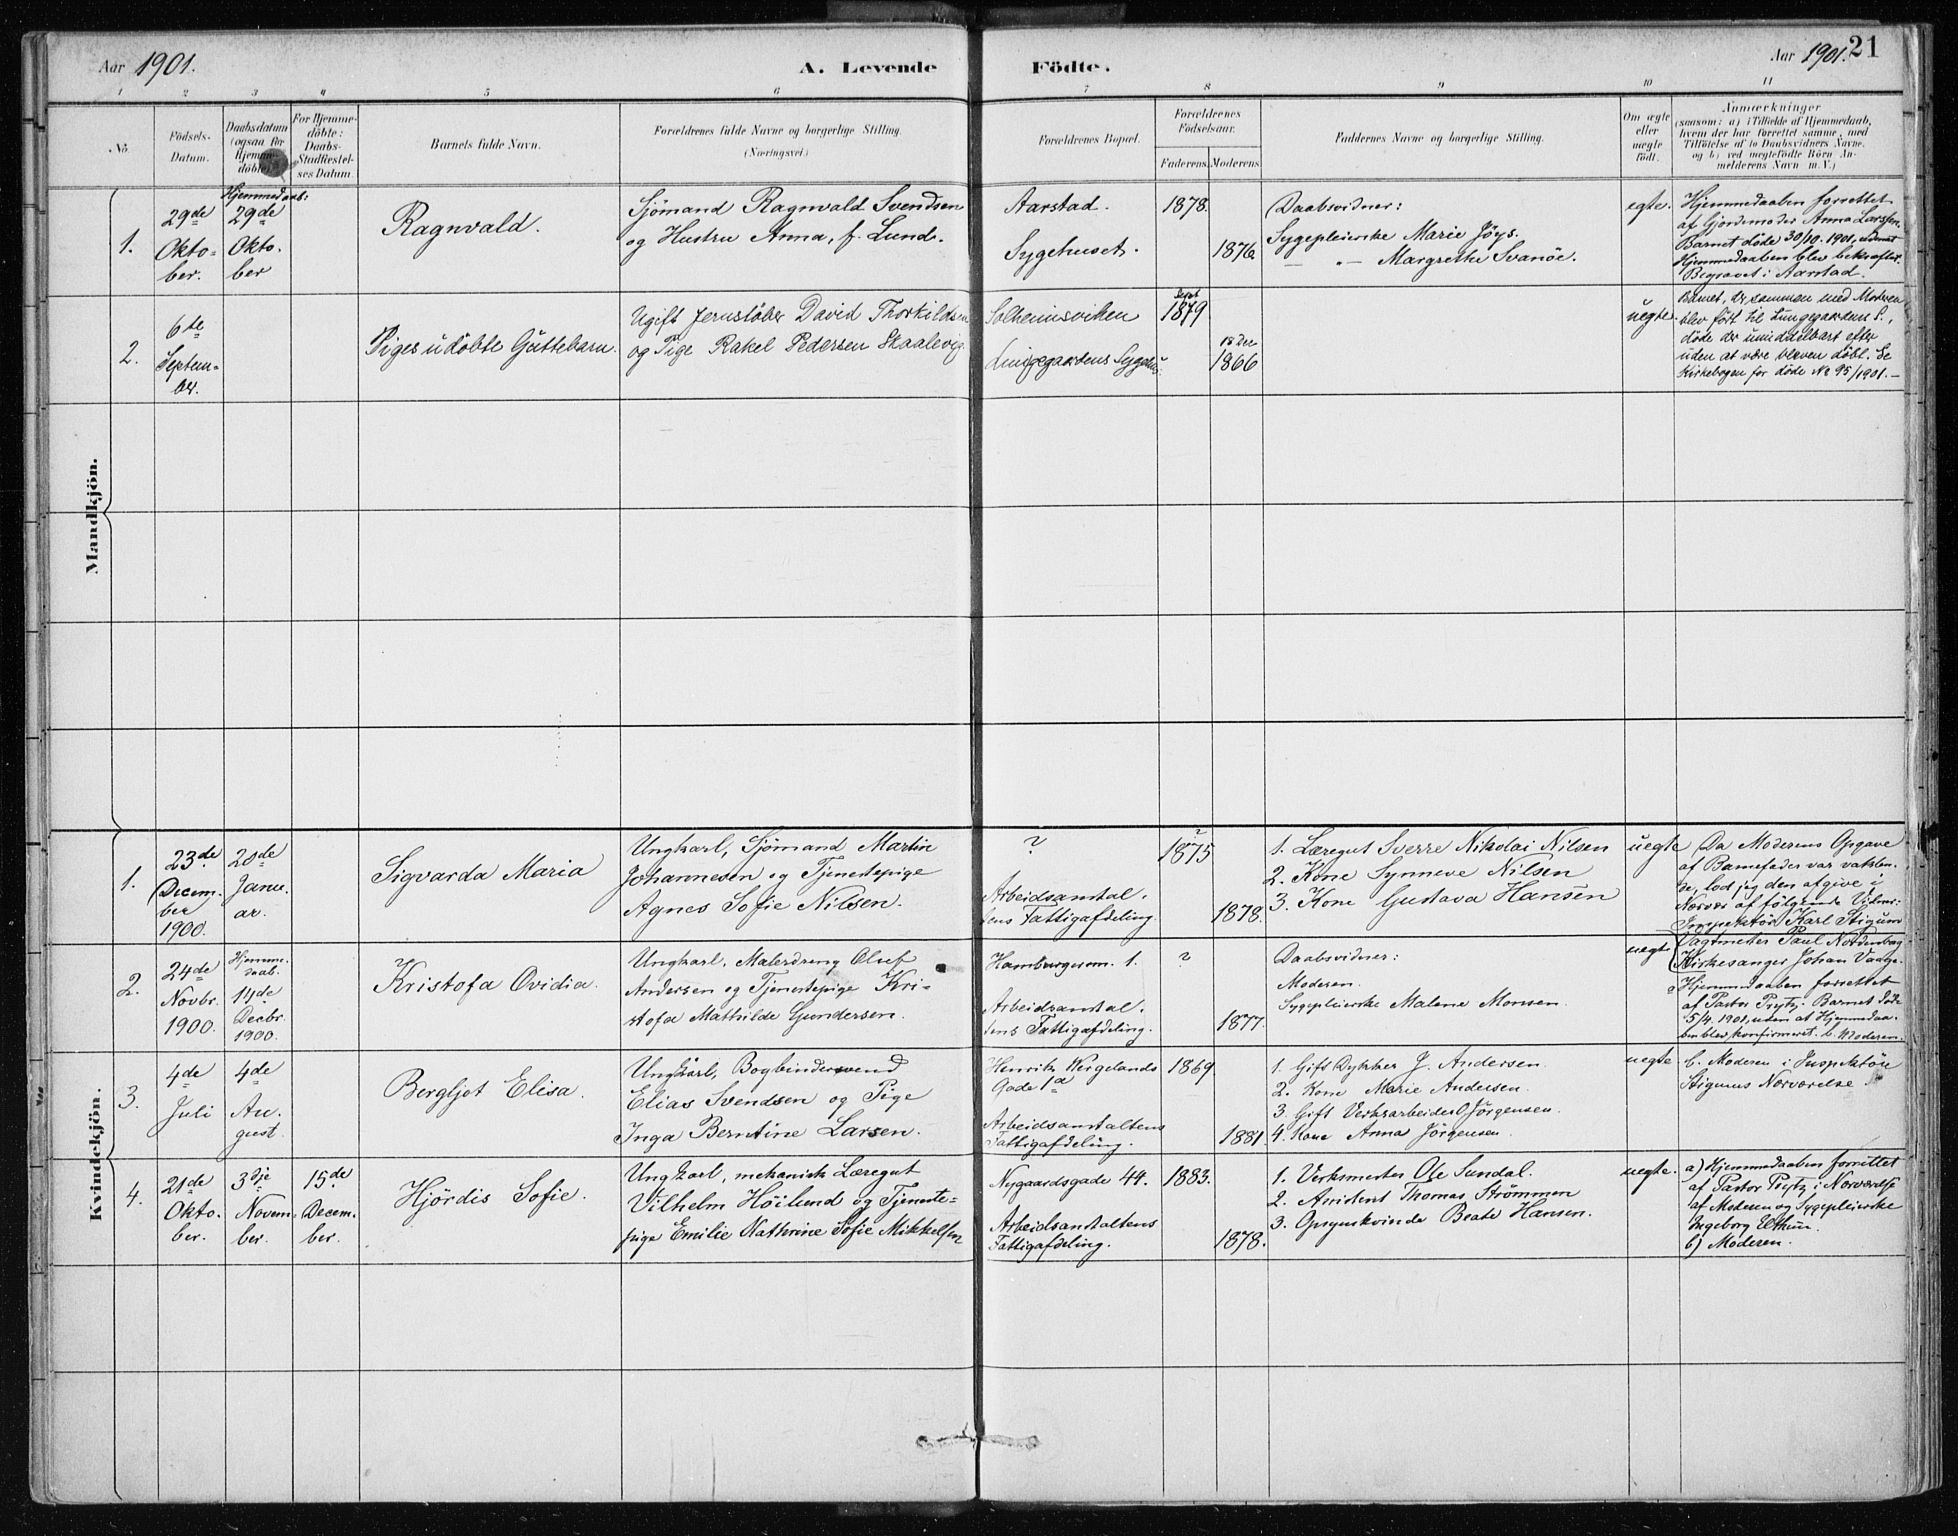 Aar 1901.
A. Levende Födte.
Aar 1901.
21
1 2 3 4 5 6 7 8 9 10 11
No.
Födsels-
Datum.
Daabsdatum
(ogsaa for
Hjemme-
döbte).
For Hjemme-
döbte:
Daabs-
Stadfæstel-
ses Datum.
Barnets fulde Navn.
Forældrenes fulde Navne og borgerlige Stilling.
(Næringsvei.)
Forældrenes Bopæl.
Forældrenes
Födselsaar.
Faderens.
Moderens.
Faddernes Navne og borgerlige Stilling.
Om ægte
eller
uægte
födt.
Anmærkninger
(saasom: a) i Tilfælde af Hjemmedaab,
hvem der har forrettet samme, med
Tilföielse af to Daabsvidners Navne,
og b) ved uegtefödte Börn An-
melderens Navn m. V.)
Mandkjön.
1.
29de
Okto-
ber.
Hjemmedaab:
29de
Okto.
ber
Ragnvald.
Sjömand Ragnvald Svendsen
og Hustru Anna, f. Lund.
Aarstad.
Sygehuset.
1878.
1876
Daabsvidner:
Sygepleierske Marie Jöys.
— „— Margrethe Svanöe.
egte.
Hjemmedaaben forrettet
af Gjordemoder Anna Larssen.
Barnet döde 30/10. 1901,
Hjemmedaaben blev bekræftet.
Begravet i Aarstad.
2.
6te
Septem-
ber.
Piges udöbte Guttebarn.
Ugift Jernstöber David Thorkildsen
og Pige Rakel Pedersen Skaalevig.
Solheimsviken
Lungegaardens Sygehus.
1879
18 Dec
1866
uegte.
Barnet, der sammen med Moderen
blev födt til Lungegaardens S.,
döde der umiddelbart efter
uden at være bleven döbt. Se
Kirkebogen for döde No 95/1901.—
Kvindekjön.
1.
23de
Decem-
ber
1900.
20de
Janu-
ar.
Sigvarda Maria
Ungkarl, Sjömand Martin
Johannesen og Tjenestepige
Agnes Sofie Nilsen.
?
Arbeidsanstal-
tens Fattigafdeling.
?
1875
1878.
1. Læregut Sverre Nikolai Nilsen
2. Kone Synneve Nilsen
3. Kone Gustava Hansen
uegte
Da Moderens Opgave
af Barnefader var vaklen-
de, lod jeg den afgive i
Nærvær af fölgende Vidner:
Inspektör Karl Stigum
Vagtmester Paul Nordenborg
Kirkesanger Johan
2.
24de
Novbr.
1900.
Hjemme-
daab.
14de
Decbr.
1900.
Kristofa Ovidia.
Ungkarl, Malerdreng Oluf
Andersen og Tjenestepige Kri-
stofa Mathilde Gundersen.
Hamburgersm. 1.
Arbeidsanstal-
tens Fattigafdeling.
?
1877.
Daabsvidner:
Moderen.
Sygepleierske Malene Monsen.
uegte
Hjemmedaaben forrettet
af Pastor Prytz. Barnet döde
5/4. 1901, uden at Hjemmedaa-
ben blev konfirmeret. b. Moderen.
3.
4de
Juli
4de
Au-
gust.
Bergljot Elisa.
Ungkarl, Bogbindersvend
Elias Svendsen og Pige
Inga Berntine Larsen.
Henrik Wergelands
Gade 1a
Arbeidsanstaltens
Fattigafdeling.
1869
1881.
1. Gift Dykker J. Andersen.
2. Kone Marie Andersen.
3. Gift Verksarbeider O. Jörgensen.
4. Kone Anna Jörgensen.
uegte
b. Moderen i Inspektör
Stigums Nærværelse
4.
21de
Okto.
ber.
3dje
Novem-
ber.
15de
Decem-
ber.
Hjördis Sofie.
Ungkarl, mekanisk Læregut
Vilhelm Höilund og Tjeneste-
pige Emilie Kathrine Sofie Mikkelsen
Nygaardsgade 44.
Arbeidsanstaltens
Fattigafdeling.
1883.
1878.
1. Verksmester Ole Sundal.
2. Assistent Thomas Strömmen
3. Opsynskvinde Beate Hansen.
uegte.
a) Hjemmedaaben forrettet
af Pastor Prytz i Nærværelse
af Moderen og Sygepleierske
Ingeborg
b) Moderen.